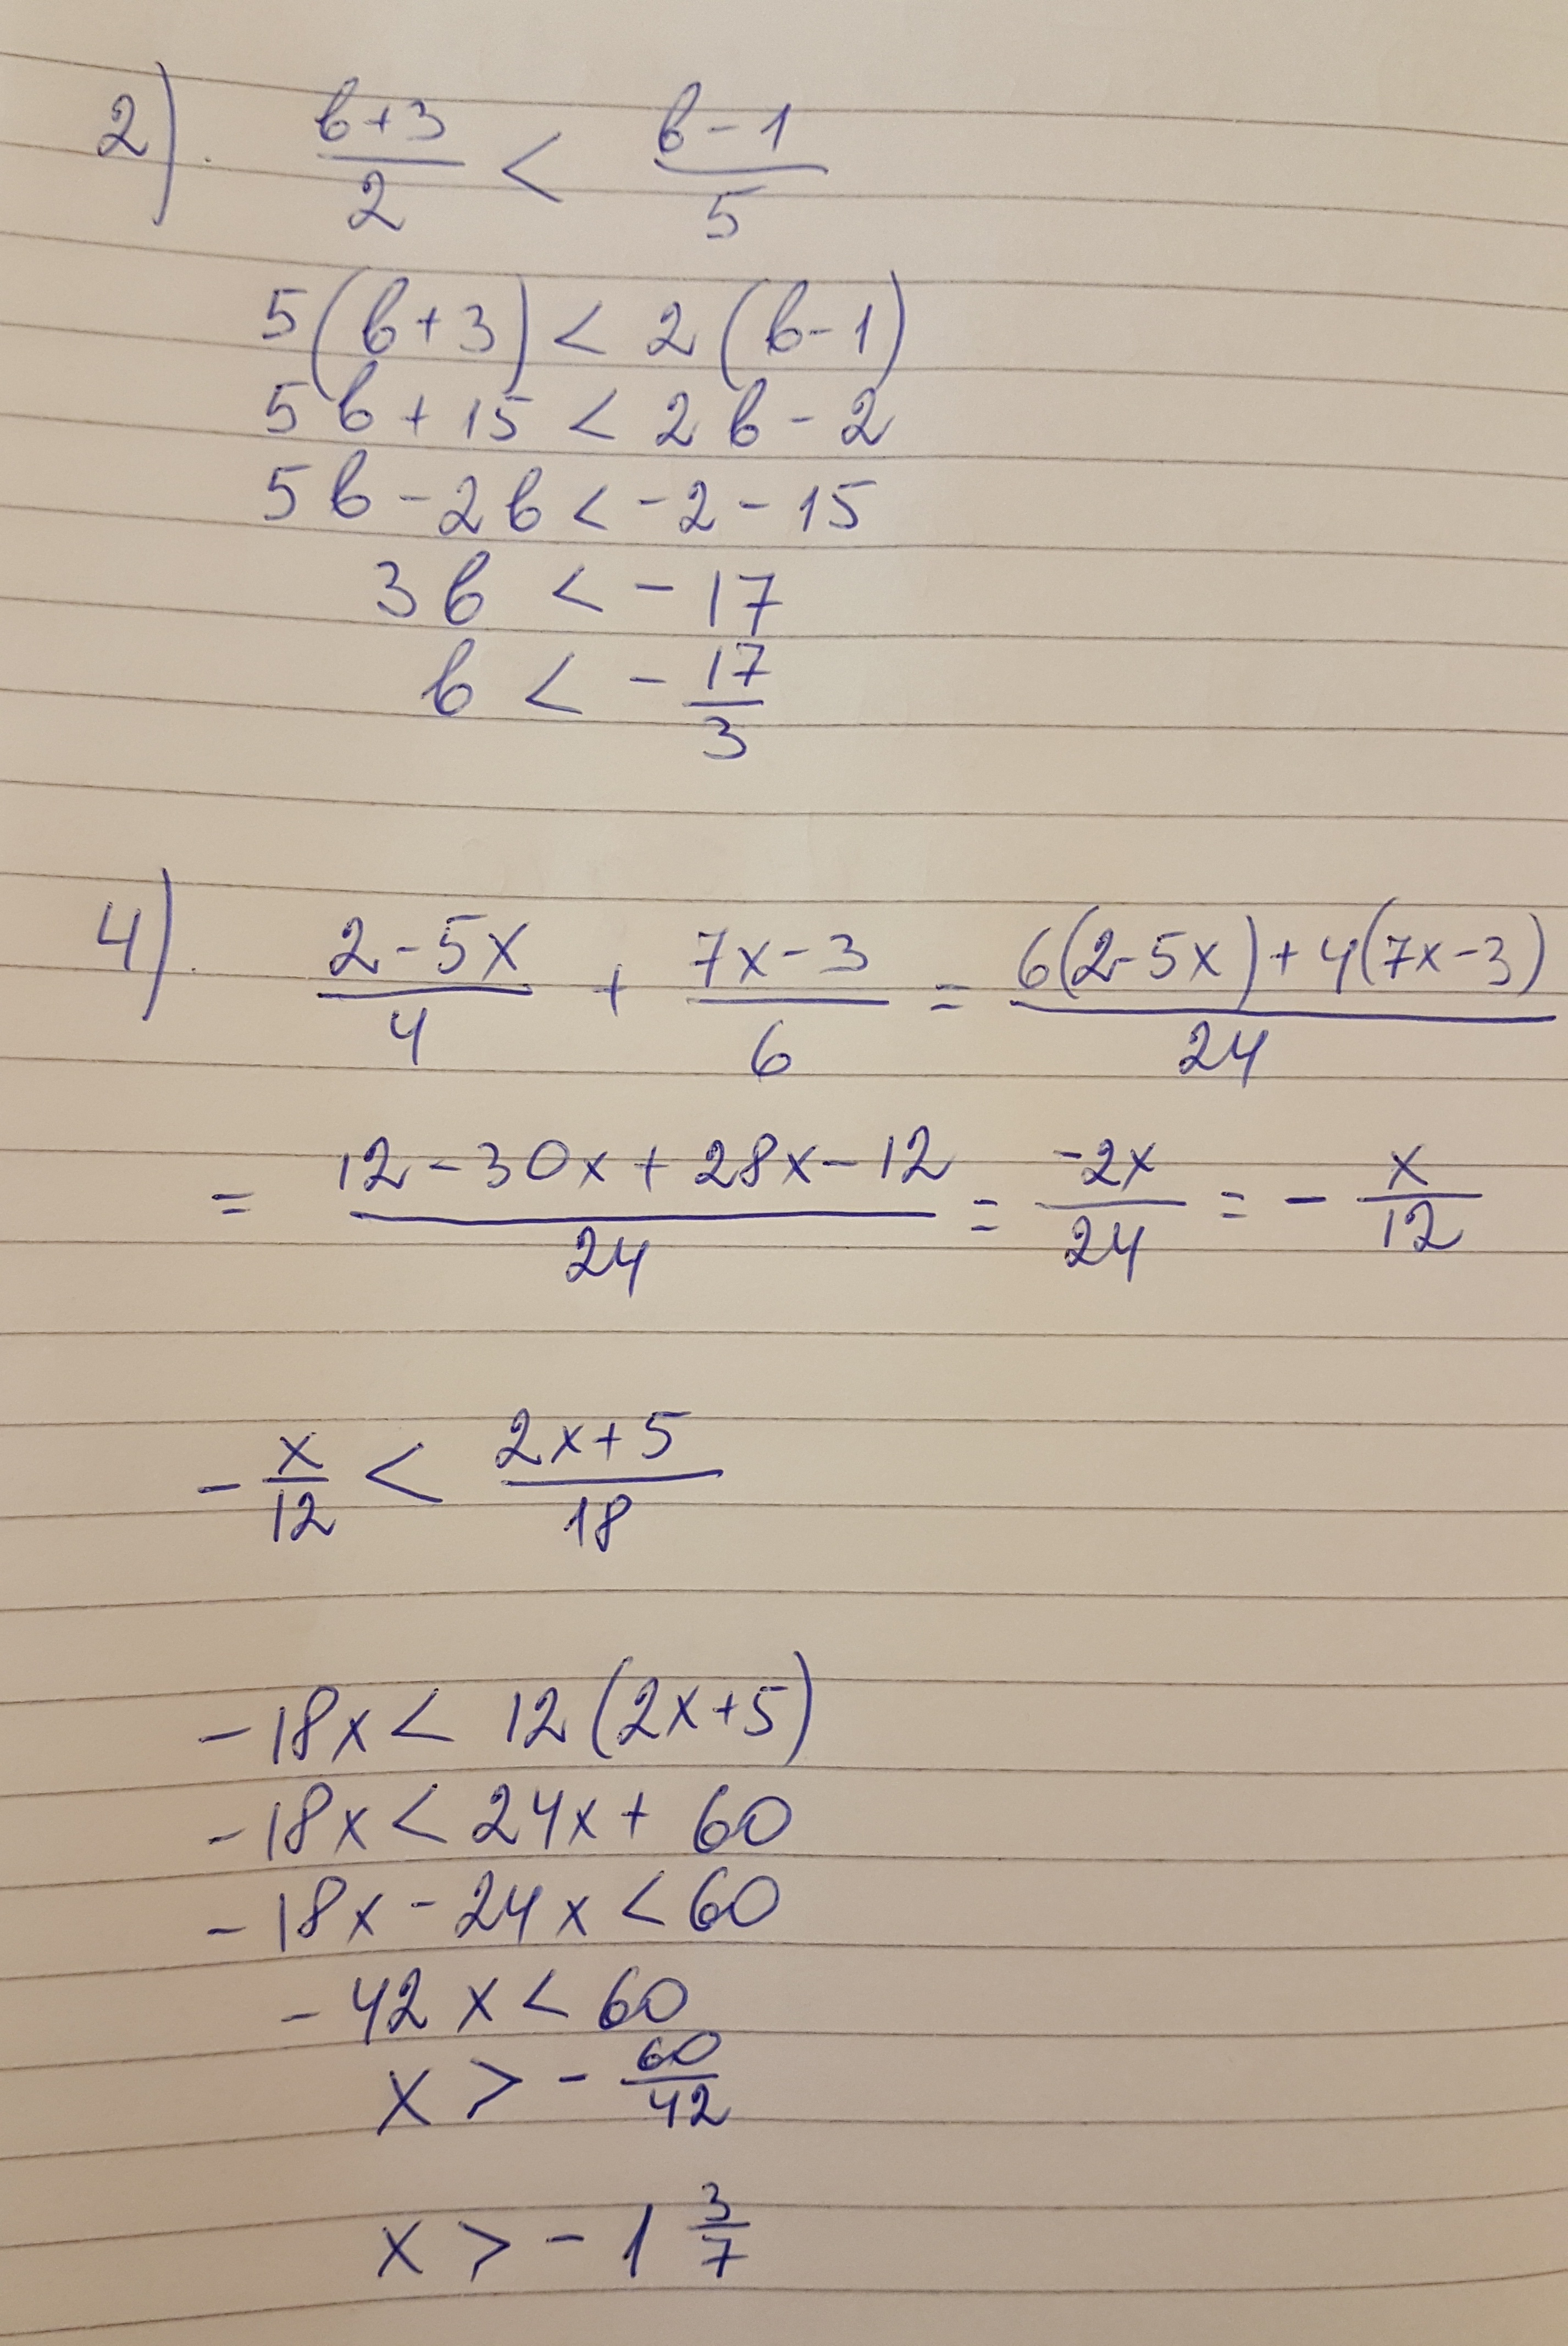 2). (b+3)/2 < (b-1)/5
5(b+3) < 2(b-1)
5b+15 < 2b-2
5b-2b < -2-15
3b < -17
b < -17/3
4). (2-5x)/4 + (7x-3)/6 = (6(2-5x)+4(7x-3))/24
= (12-30x+28x-12)/24 = -2x/24 = -x/12
-x/12 < (2x+5)/18
-18x < 12(2x+5)
-18x < 24x+60
-18x-24x < 60
-42x < 60
x > -60/42
x > -1 3/7